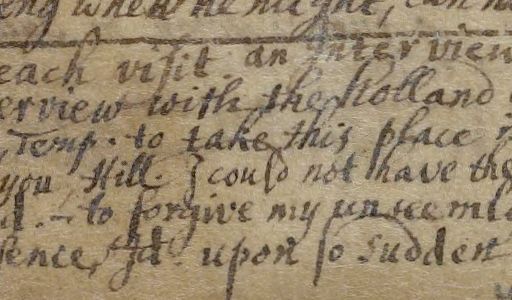 each visit. an Interview
erview with the Holland
Temp. to take this place
you Hill. I could not have the
d. – to forgive my unseeml
upon so sudden